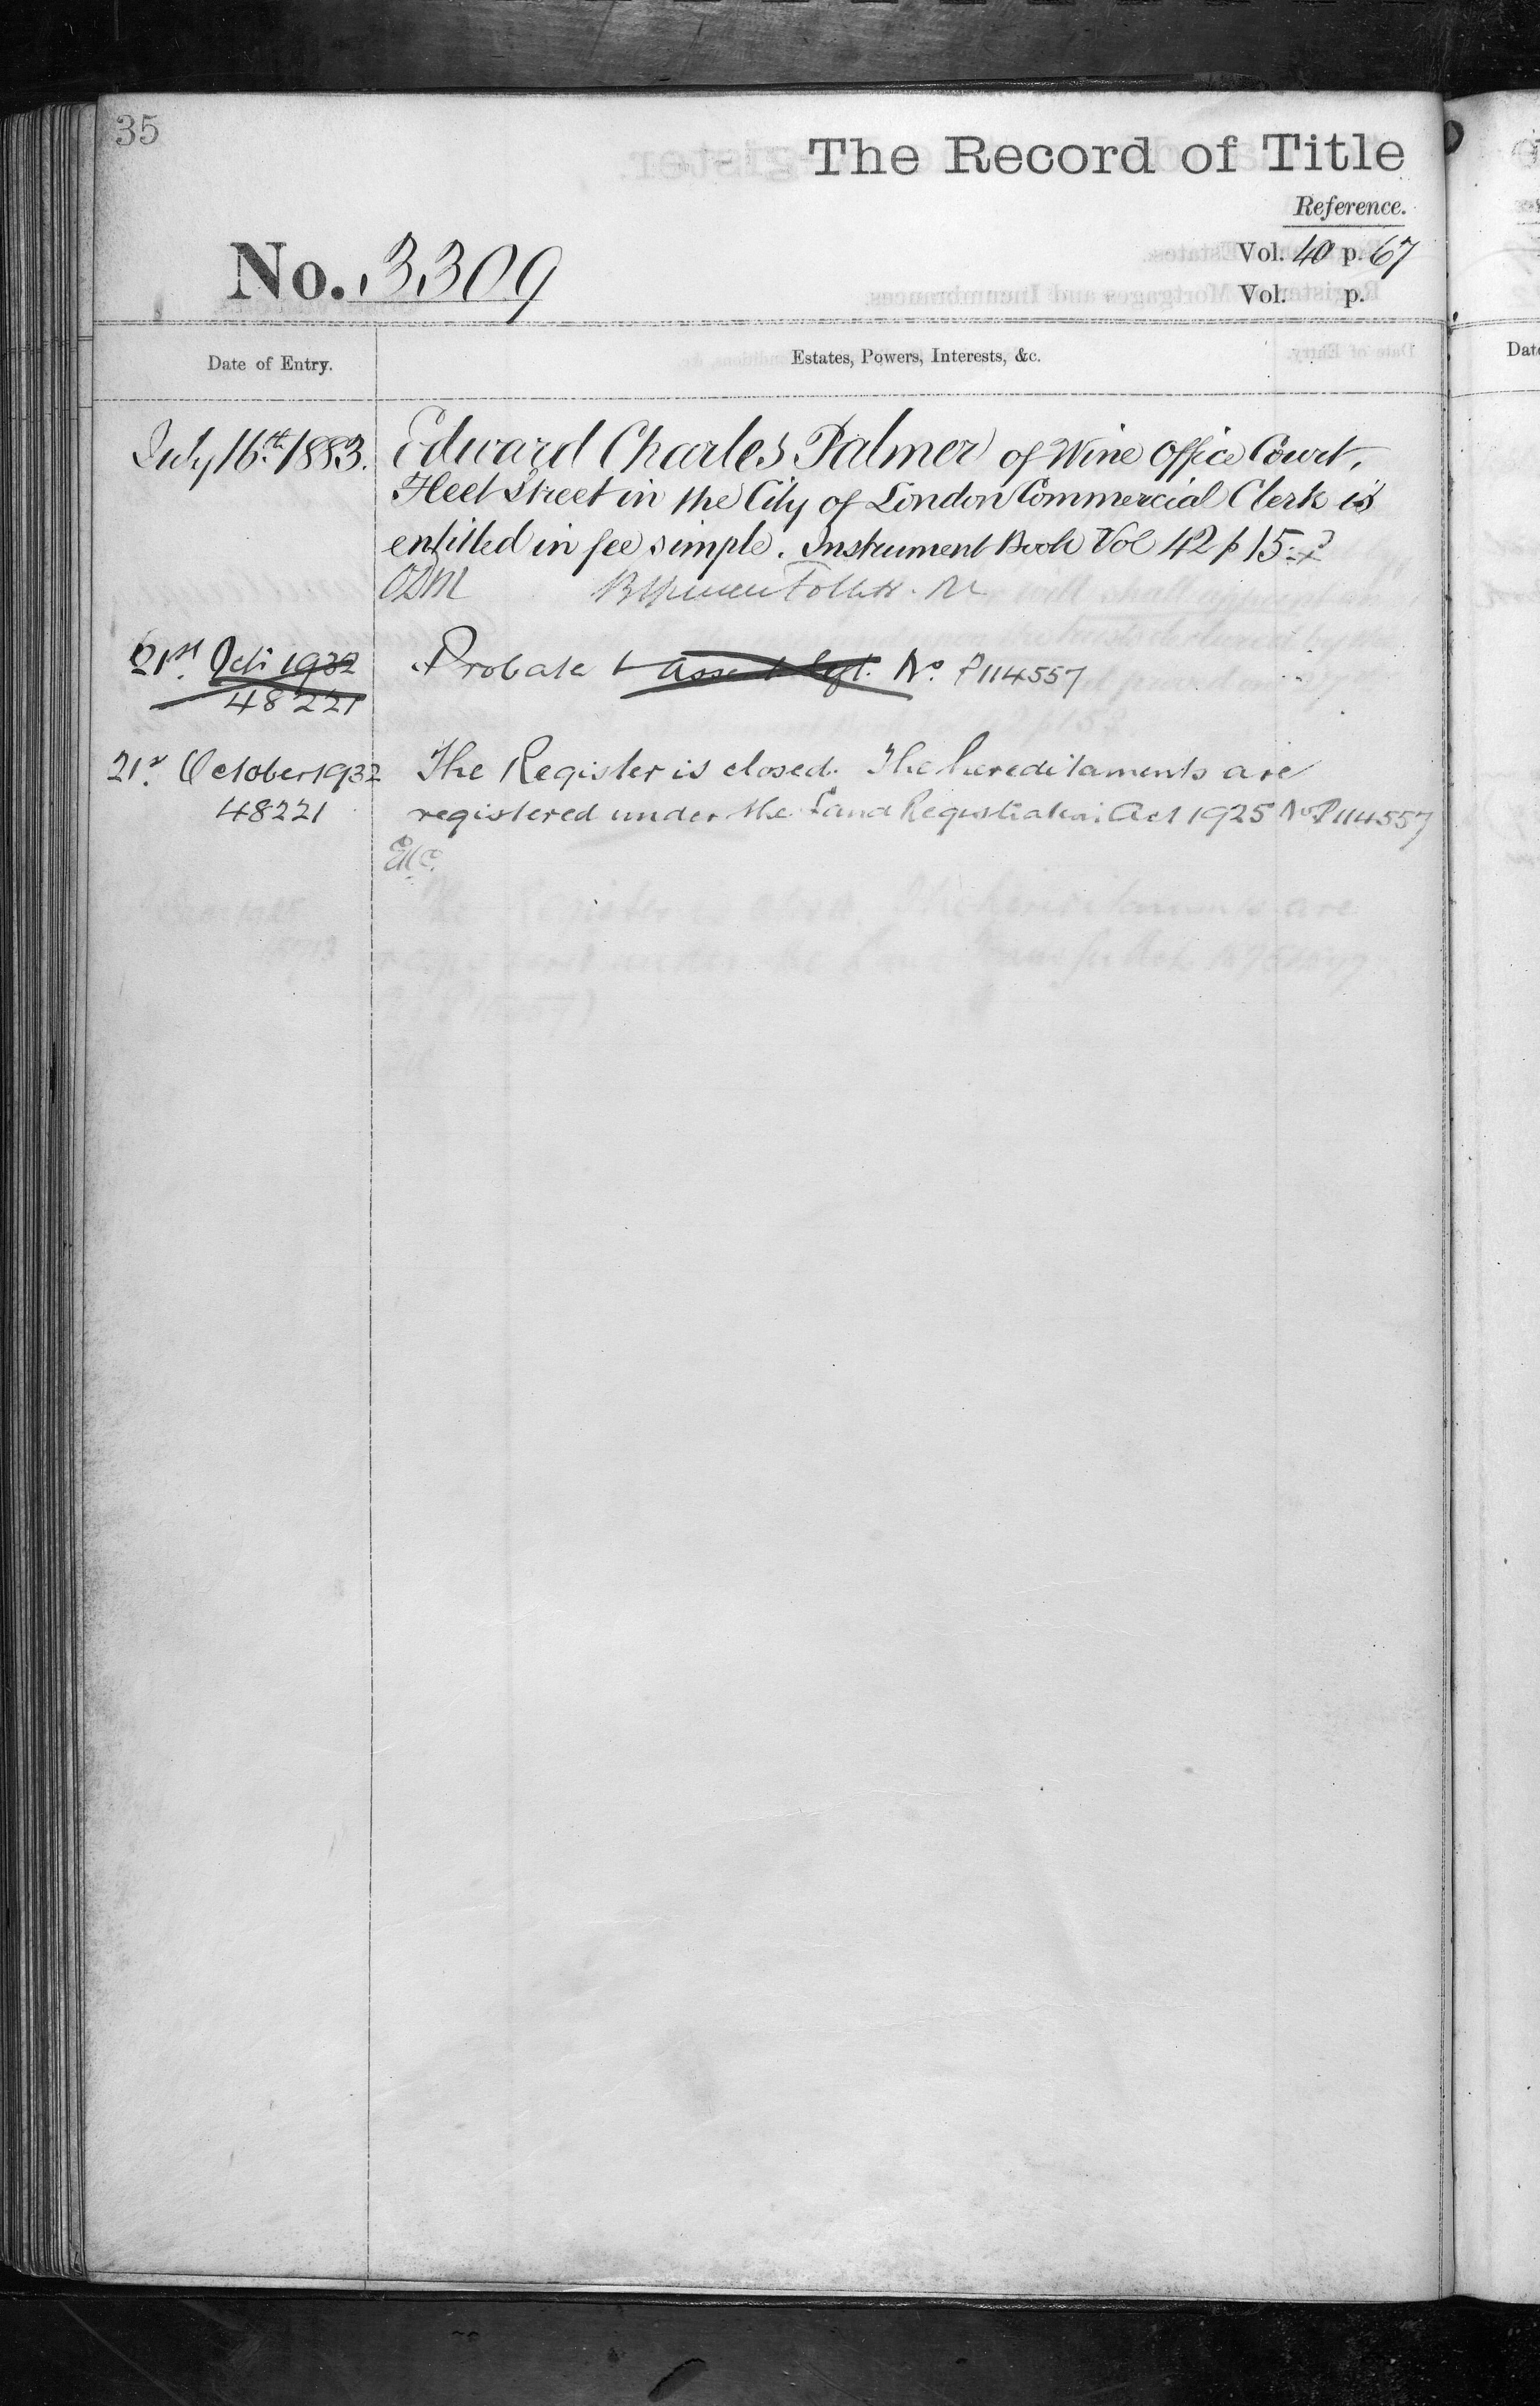 35
The Record of Title
Reference.
No. 3309
Vol. 40 p. 67
Vol. p.
Date of Entry.
Estates, Powers, Interests, &c.
July 16th 1883. Edward Charles Palmer of Wine Office Court,
Fleet Street in the City of London Commercial Clerk is
entitled in fee simple. Instrument Book Vol 42 p 15
21st Oct: 1932 Probate & Assent Regt. No P114557
48221
21st October 1932 The Register is closed. The hereditaments are
48221 registered under the Land Registration Act 1925 No P114557